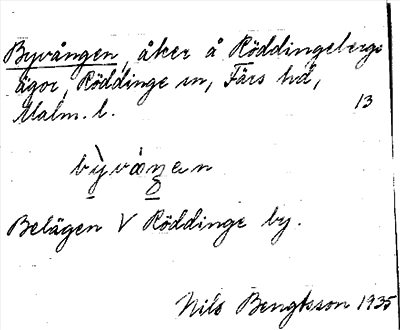 Byvången, åker å Röddingebergs
ägor, Röddinge sn, Färs hd,
Malm. l. 13
bỳvåŋen
Belägen V Röddinge by.
Nils Bengtsson 1935